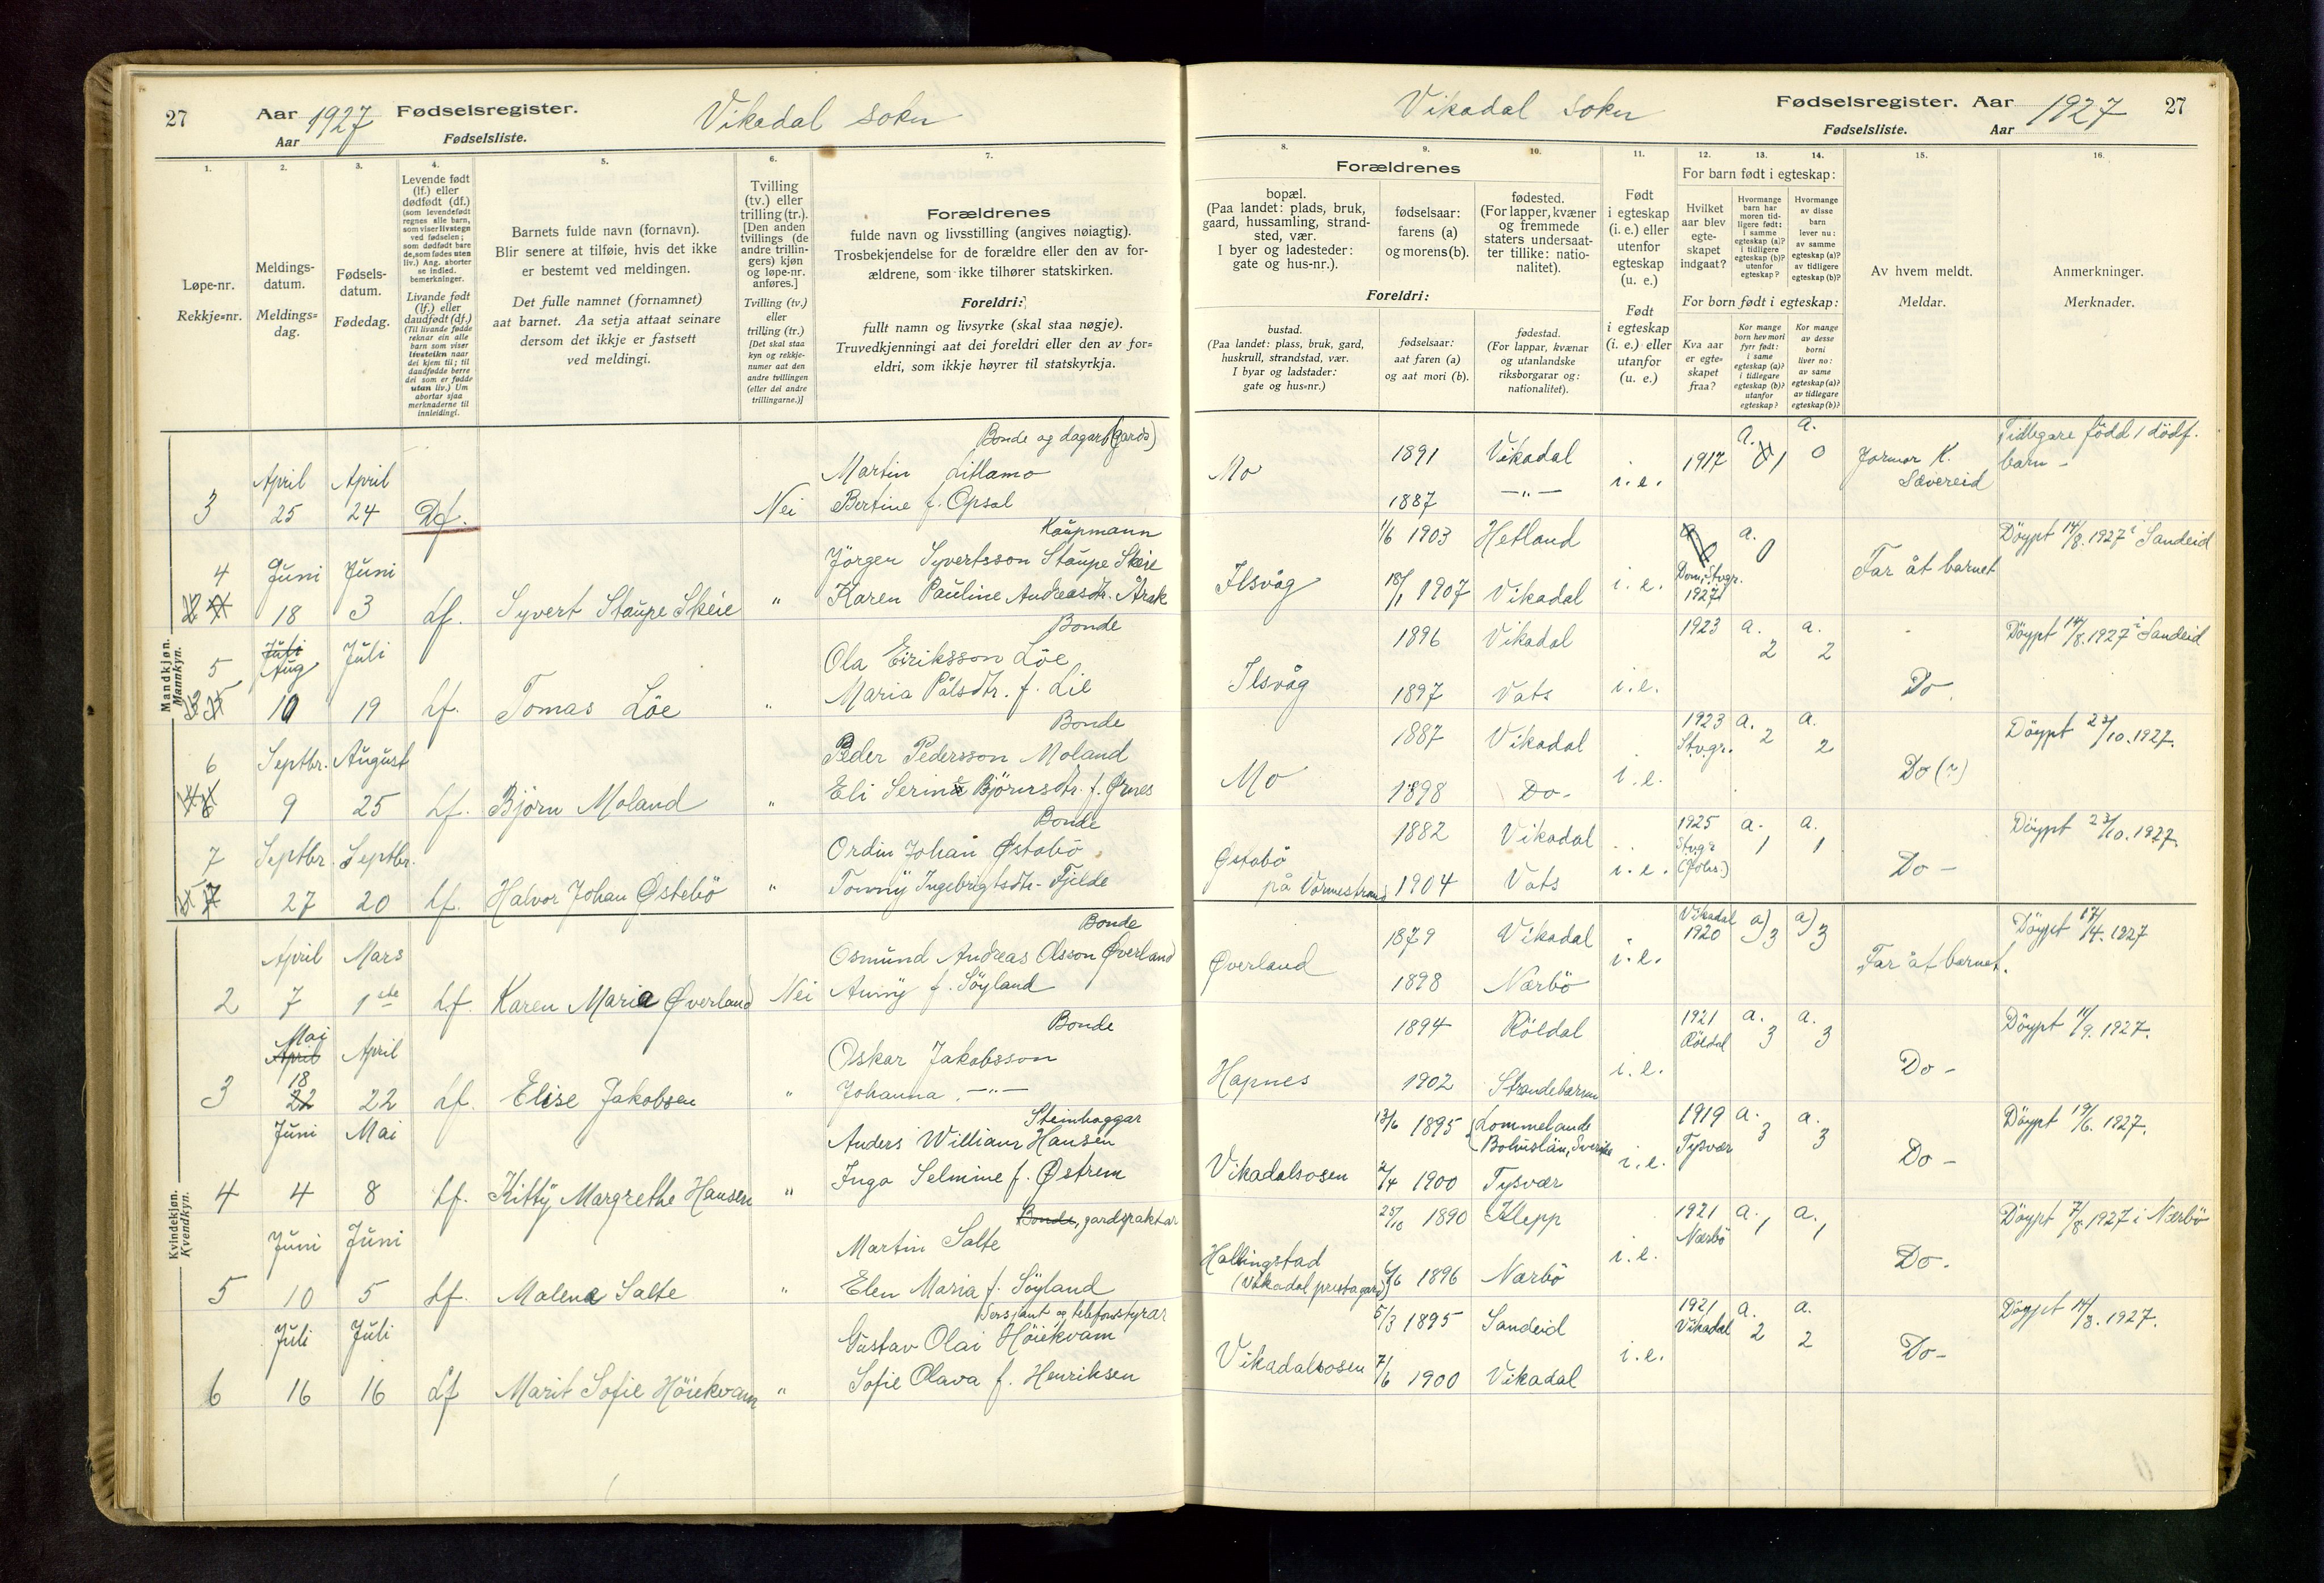 27 Aar 1927 Fødselsregister. Vikadal sokn
Aar Fødselsliste.
1. 2. 3. 4. 5. 6. 7.
Løpe-nr.
Rekkje=nr.
Meldings-
datum.
Meldings=
dag.
Fødsels-
datum.
Fødedag.
Levende født
(lf.) eller
dødfødt (df.)
(som levendefødt
regnes alle barn,
som viser livstegn
ved fødselen;
som dødfødt bare
de, som fødes uten
liv.) Ang. aborter
se indled.
bemerkninger.
Livande født
(lf.) eller
daudfødt (df.)
(Til livande fødde
reknar ein alle
barn som viser
livsteikn naar
dei kjem til; til
daudfødde berre
dei som er fødde
utan liv.) Um
abortar sjaa
merknaderne til
innleidingi.
Barnets fulde navn (fornavn).
Blir senere at tilføie, hvis det ikke
er bestemt ved meldingen.
Det fulle namnet (fornamnet)
aat barnet. Aa setja attaat seinare
dersom det ikkje er fastsett
ved meldingi.
Tvilling
(tv.) eller
trilling (tr.).
[Den anden
tvillings (de
andre trillin-
gers) kjøn
og løpe-nr.
anføres.]
Tvilling (tv.)
eller
trilling (tr.)
[Det skal staa
kyn og rekkje-
numer aat den
andre tvillingen
(eller dei andre
trillingarne.)]
Forældrenes
fulde navn og livsstilling (angives nøiagtig).
Trosbekjendelse for de forældre eller den av for-
ældrene, som ikke tilhører statskirken.
Foreldri:
fullt namn og livsyrke (skal staa nøgje).
Truvedkjenningi aat dei foreldri eller den av for=
eldri, som ikkje høyrer til statskyrkja.
Mandkjøn.
Mannkyn.
Bonde og dagarb (gards)
April April Martin Litlamo
3 25 24 Df. Nei Bertine f. Opsal
Kaupmann
4 Juni Juni Jörgen Syvertsson Staupe Skeie
18 3 Lf. Syvert Staupe Skeie " Karen Pauline Andreasdtr. Årak
Bonde
5 Juli Aug Juli Ola Eiriksson Löe
10 19 Lf. Tomas Löe " Maria Pålsdtr. f. Lie
Bonde
6 Septbr. August Peder Pedersson Moland
9 25 Lf. Björn Moland " Eli Serina Björnsdtr. f. Ørnes
Bonde
7 Septbr. Septbr. Ordin Johan Østabö
27 20 Lf. Halvor Johan Østebö " Tonny Ingebrigtsdtr. Fjelde
Kvindekjøn.
Kvendkyn.
Bonde
April Mars Osmund Andreas Olsson Øverland
2 7 1ste Lf. Karen Maria Øverland Nei Anny f. Söyland
Bonde
Mai April April Oskar Jakobsson
3 18 22 22 Lf. Elise Jakobsen " Johanna —"—
Steinhoggar
Juni Mai Anders William Hansen
4 4 8 Lf. Kitty Margrethe Hansen " Inga Selmine f. Østrem
Bonde, gardspaktar
Juni Juni Martin Salte
5 10 5 Lf. Malena Salte " Elen Maria f. Söyland
Sersjant og telefonstyrar
Juli Juli Gustav Olai Höiekvam
6 16 16 Lf Marit Sofie Höiekvam " Sofie Olava f. Henriksen
Vikadal sokn Fødselsregister. Aar 1927 27
Fødselsliste. Aar
8. 9. 10. 11. 12. 13. 14. 15. 16.
Forældrenes
bopæl.
(Paa landet: plads, bruk,
gaard, hussamling, strand-
sted, vær.
I byer og ladesteder:
gate og hus-nr.).
fødselsaar:
farens (a)
og morens (b).
fødested.
(For lapper, kvæner
og fremmede
staters undersaat-
ter tillike: natio-
nalitet).
Foreldri:
bustad.
(Paa landet: plass, bruk, gard,
huskrull, strandstad, vær.
I byar og ladstader:
gate og hus=nr.)
fødselsaar:
aat faren (a)
og aat mori (b).
fødestad.
(For lappar, kvænar
og utanlandske
riksborgarar og:
nationalitet).
Født
i egteskap
(i. e.) eller
utenfor
egteskap
(u. e.)
Født
i egteskap
(i. e.) eller
utanfor
(u. e.)
For barn født i egteskap:
Hvilket
aar blev
egte-
skapet
indgaat?
Hvormange
barn har
moren tid-
ligere født:
i samme
egteskap (a)?
i tidligere
egteskap (b)?
utenfor
egteskap?
Hvormange
av disse
barn
lever nu:
av samme
egteskap (a)?
av tidligere
egteskap (b)?
For born født i egteskap:
Kva aar
er egte=
skapet
fraa?
Kor mange
born hev mori
fyrr født:
i same
egteskap (a)?
i tidlegare
egteskap (b)?
utanfor
egteskap?
Kor mange
av desse
borni
liver no:
av same
egteskap (a)?
av tidlegare
egteskap (b)?
Av hvem meldt.
Meldar.
Anmerkninger.
Merknader.
Mo 1891 Vikadal i. e. 1917 a. 1 a. 0 Sævereid Tidlegare född 1 dödf.
1887 —"— barn –
Ilsvåg 1/6 1903 Hetland i. e. a. 0 Far åt barnet Döypt 14/8.1927 i Sandeid
18/1 1907 Vikadal 1927
Ilsvåg 1896 Vikadal i. e. 1923 a. 2 a. 2 Do Döypt 14/8.1927 i Sandeid
1897 Vats
Mo 1887 Vikadal i. e. 1923 Stvgr. a. 2 a. 2 Do (?) Döypt 23/10.1927.
1898 Do-
Østabö 1882 Vikadal i. e. 1925 a. 1 a. 1 Do – Döypt 23/10.1927.
på Vormestrand 1904 Vats
Øverland 1879 Vikadal i. e. Vikadal 1920 a) 3 a) 3 Far åt barnet. Döypt 17/4. 1927
1898 Nærbö
Hapnes 1894 Röldal i. e. 1921 Röldal a. 3 a. 3 Do – Döypt 11/9. 1927.
1902 Strandebarm
Vikadalsosen 13/6 1895 Lommelande i. e. 1919 Tysvær a. 3 a. 3 Do – Döypt 19/6. 1927.
Bohuslän, Sverike
2/4 1900 Tysvær
Hallingstad 25/10 1890 Klepp i. e. 1921 Nærbö a. 1 a. 1 Do. Döypt 7/8.1927 i Nærbö
(Vikadal prestagard) 6/6 1896 Nærbö
Vikadalsosen 5/3 1895 Sandeid i. e. 1921 Vikadal a. 2 a. 2 Do– Döypt 14/8. 1927.
7/6 1900 Vikadal